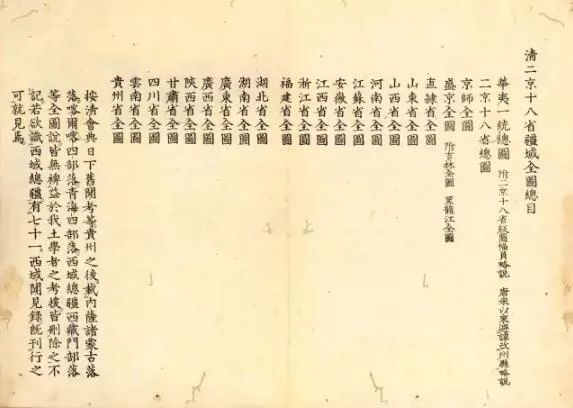 清二京十八省疆域全圖總目
華夷一統總圖 附二京十八省疆圖幅員略説 唐宋以來避諱改州縣略説
二京十八省總圖
京師全圖
盛京全圖 附吉林全圖 黑龍江全圖
直隷省全圖
山東省全圖
山西省全圖
河南省全圖
江蘇省全圖
安徽省全圖
江西省全圖
浙江省全圖
福建省全圖
湖北省全圖
湖南省全圖
廣東省全圖
廣西省全圖
陝西省全圖
甘肅省全圖
四川省全圖
雲南省全圖
貴州省全圖
按清會典日下舊聞考等貴州之後載內薩諸蒙古落
落喀爾喀四部落青海四部落西域總疆西藏門部落
等全圖説皆無裨益於我土學者之考據皆刪除之不
記若欲識西域總疆有七十一西域聞見錄既刊行之
可就見焉